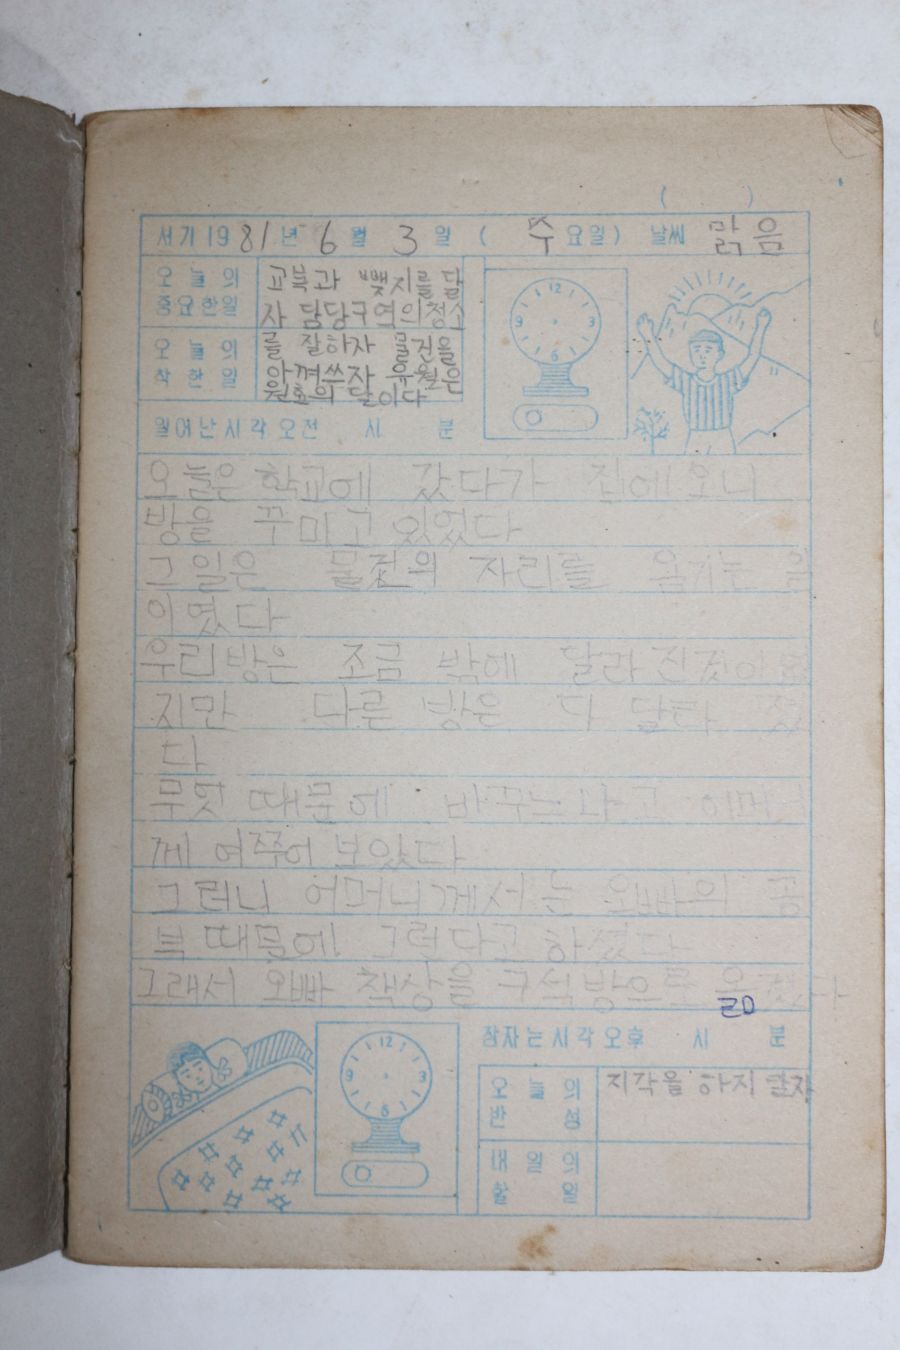 ( )
서기 1981년 6월 3일 ( 수요일) 날씨 맑음
오늘의
중요한일
교복과 뺏지를 달
자 담당구역의청소
오늘의
착한일
를 잘하자 물건을
아껴쓰자 유월은
원호의 달이다
12
3
6
9
일어난시각오전 시 분
오늘은 학교에 갔다가 집에 오니
방을 꾸미고 있었다
그일은 물건의 자리를 옴기는 일
이였다
우리방은 조금 밖에 달라진것이
지만 다른 방은 다 달라 졌
다
무엇 때문에 바꾸느냐고 어머니
께 여쭈어 보았다
그러니 어머니께서는 오빠의 공
부 때문에 그런다고 하셨다
그래서 오빠 책상을 구석방으로 옴겼다
20
12
3
6
9
잠자는시각오후 시 분
오늘의
반성
지각을 하지 말자
내일의
할일